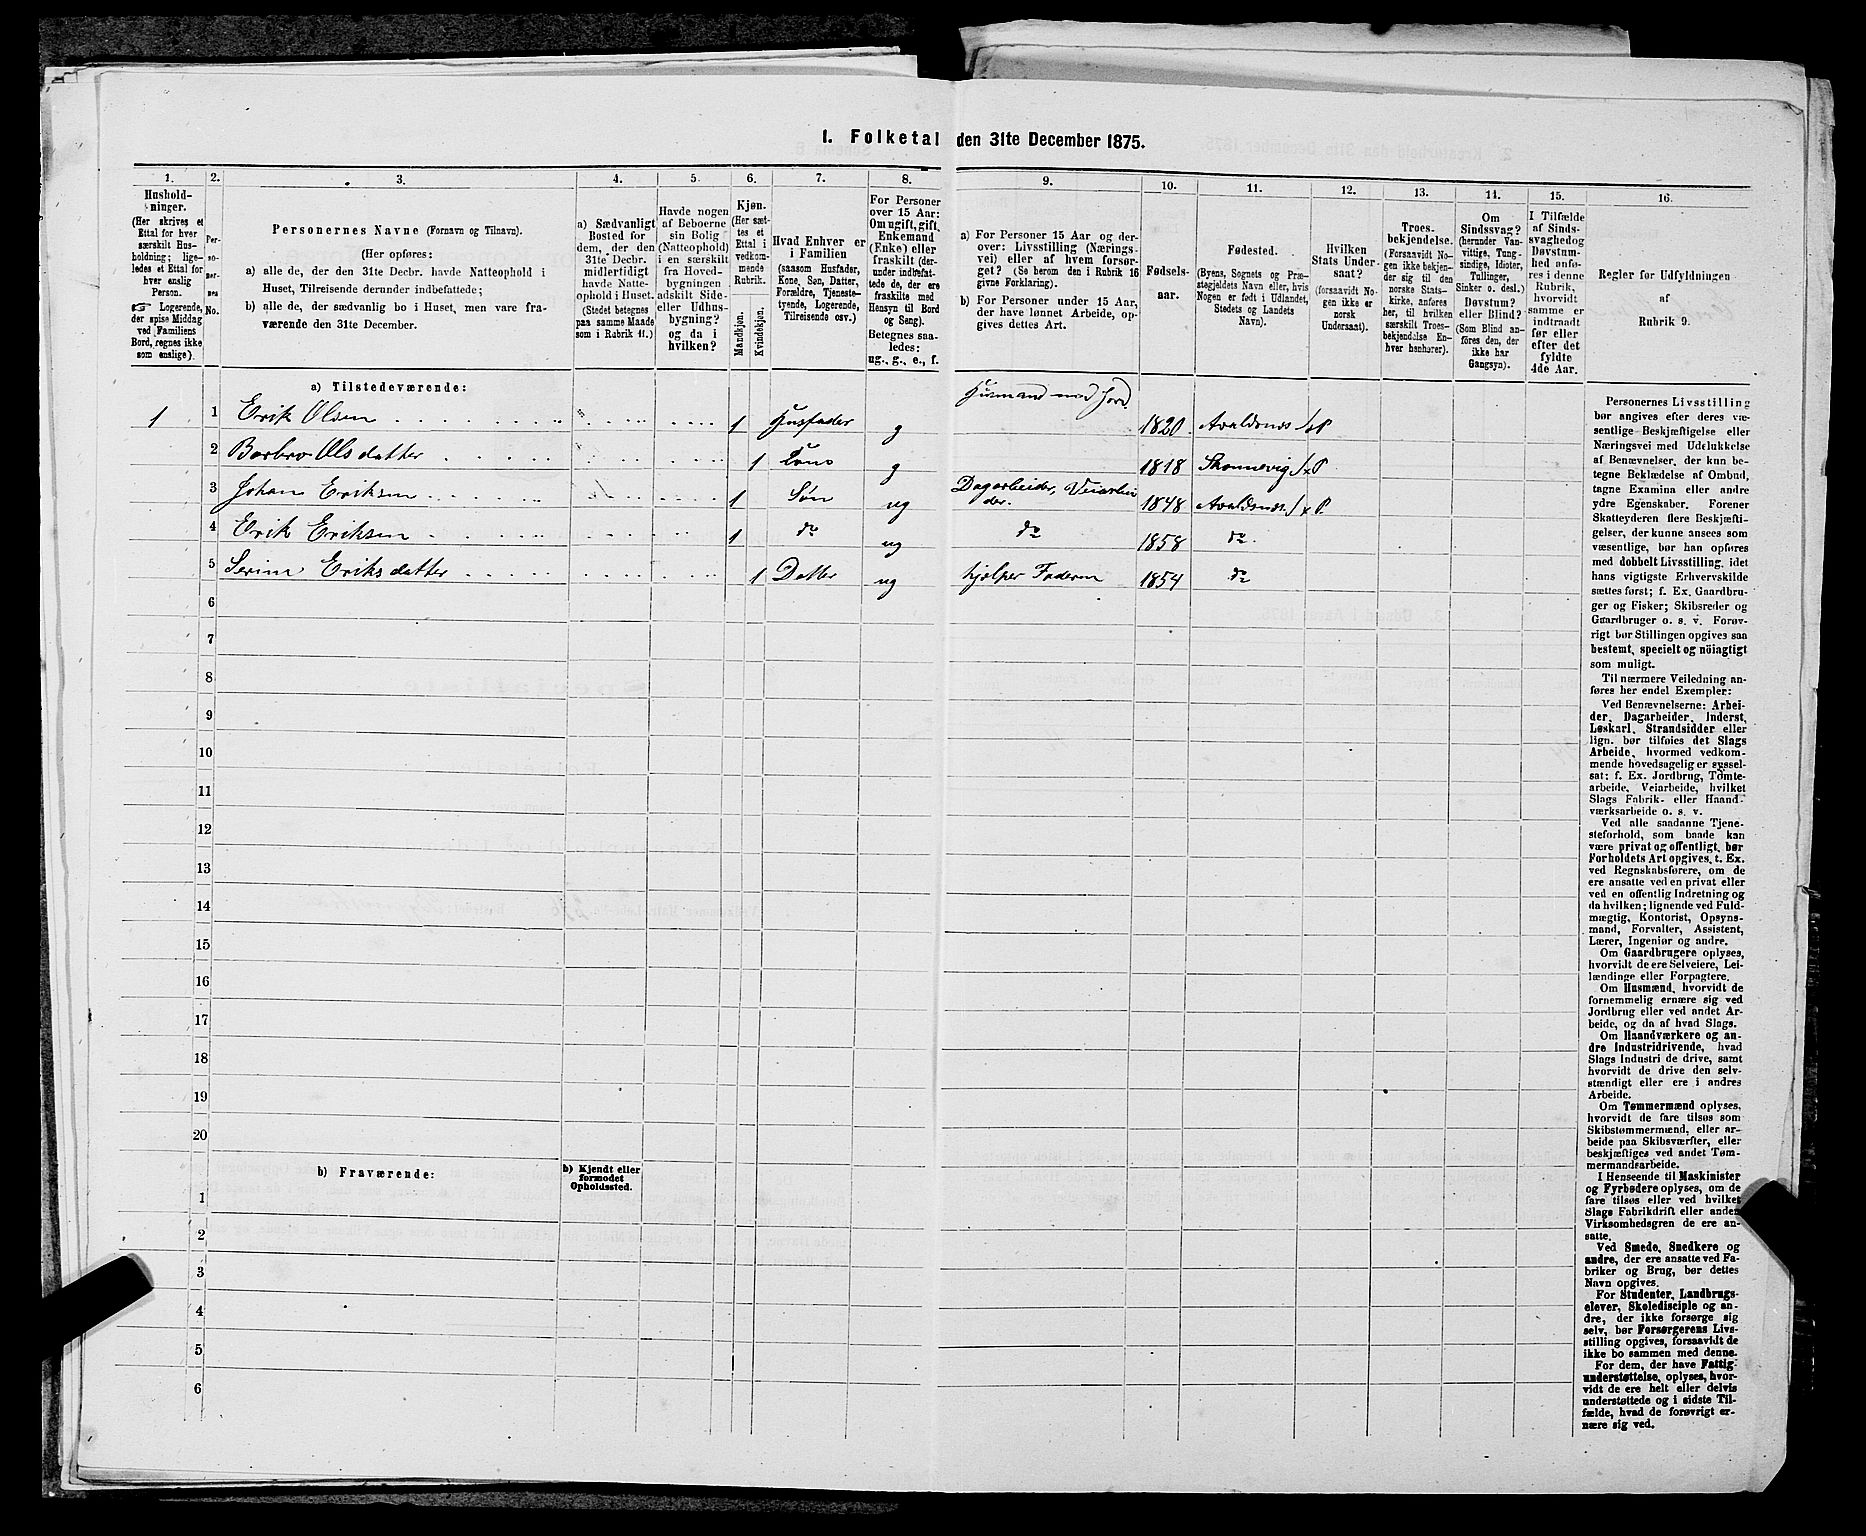 1. Folketal den 31te December 1875.
1.
Hushold-
ninger.
(Her skrives et
Ettal for hver
særskilt Hus-
holdning; lige-
ledes et Ettal for
hver enslig
Person.
☞ Logerende,
der spise Middag
ved Familiens
Bord, regnes ikke
som enslige).
2.
Per-
so-
ner-
nes
No.
3.
Personernes Navne (Fornavn og Tilnavn).
(Her opføres:
a) alle de, der den 31te Decbr. havde Natteophold i
Huset, Tilreisende derunder indbefattede;
b) alle de, der sædvanlig bo i Huset, men vare fra-
værende den 31te December.
4.
a) Sædvanligt
Bosted for
dem, der den
31te Decbr.
midlertidigt
havde Natte-
ophold i Huset.
(Stedet betegnes
paa samme Maade
som i Rubrik 11.)
5.
Havde nogen
af Beboerne
sin Bolig
(Natteophold)
i en særskilt
fra Hoved-
bygningen
adskilt Side-
eller Udhus-
bygning?
og da i
hvilken?
6.
Kjøn.
(Her sæt-
tes et
Ettal i
vedkom-
mende
Rubrik.
Mandkjøn.
Kvindekjøn.
7.
Hvad Enhver er
i Familien
(saasom Husfader,
Kone, Søn, Datter,
Forældre, Tjeneste-
tyende, Logerende,
Tilreisende osv.)
8.
For Personer
over 15 Aar:
Om ugift, gift,
Enkemand
(Enke) eller
fraskilt (der-
under indbefat-
tede de, der ere
fraskilte med
Hensyn til Bord
og Seng).
Betegnes saa-
ledes:
ug., g., e., f.
9.
a) For Personer 15 Aar og der-
over: Livsstilling (Nærings-
vei) eller af hvem forsør-
get? (Se herom den i Rubrik 16
givne Forklaring).
b) For Personer under 15 Aar,
der have lønnet Arbeide, op-
gives dettes Art.
10.
Fødsels-
aar.
11.
Fødested.
(Byens, Sognets og Præ-
stegjeldets Navn eller, hvis
Nogen er født i Udlandet,
Stedets og Landets
Navn).
12.
Hvilken
Stats Under-
saat?
(forsaavidt No-
gen ikke er
norsk
Undersaat).
13.
Troes-
bekjendelse.
(Forsaavidt No-
gen ikke bekjen-
der sig til den
norske Stats-
kirke, anføres
her, til hvilken
særskilt Troes-
bekjendelse En-
hver henhører).
14.
Om
Sindssvag?
(herunder Van-
vittige, Tung-
sindige, Idioter,
Tullinger,
Sinker o. desl.)
Døvstum?
eller Blind?
(Som Blind an-
føres den, der
ikke har
Gangsyn).
15.
I Tilfælde
af Sinds-
svaghed og
Døvstum-
hed anfø-
res i denne
Rubrik,
hvorvidt
samme er
indtraadt
før eller
efter det
fyldte
4de Aar.
16.
Regler for Udfyldningen
af
Rubrik 9.
a) Tilstedeværende:
1 1 Erik Olsen 1 Husfader g Husmand med Jord. 1820 Avaldsnes S&P
2 Barbro Olsdatter 1 Kone g 1818 Skonnevig S&P
3 Johan Eriksen 1 Søn ug Dagarbeider, Veiarbei
der. 1848 Avaldsnes S&P.
4 Erik Eriksen 1 do ug do 1858 do.
5 Serine Eriksdatter 1 Datter ug hjælper Faderen 1854 do
6
7
8
9
10
11
12
13
14
15
16
17
18
19
20
b) Fraværende:
b) Kjendt eller
formodet
Opholdssted.
1
2
3
4
5
6
Personernes Livsstilling
bør angives efter deres væ-
sentlige Beskjæftigelse eller
Næringsvei med Udelukkelse
af Benævnelser, der kun be-
tegne Beklædelse af Ombud,
tagne Examina eller andre
ydre Egenskaber. Forener
Skatteyderen flere Beskjæfti-
gelser, der kunne ansees som
væsentlige, bør han opføres
med dobbelt Livsstilling, idet
hans vigtigste Erhvervskilde
sættes først; f. Ex. Gaardbru-
ger og Fisker; Skibsreder og
Gaardbruger o. s. v. Forøv-
rigt bør Stillingen opgives saa
bestemt, specielt og nöiagtigt
som muligt.
Til nærmere Veiledning an-
føres her endel Exempler:
Ved Benævnelserne: Arbei-
der, Dagarbeider, Inderst,
Løskarl, Strandsidder eller
lign. bør tilføies det Slags
Arbeide, hvormed vedkom-
mende hovedsagelig er syssel-
sat; f. Ex. Jordbrug, Tømte-
arbeide, Veiarbeide, hvilket
Slags Fabrik- eller Haand-
værksarbeide o. s. v.
Ved alle saadanne Tjene-
steforhold, som baade kan
være privat og offentligt, bør
Forholdets Art opgives, t. Ex.
ved Regnskabsførere, om de
ere ansatte ved en privat eller
ved en offentlig Indretning og
da hvilken; lignende ved Fuld-
mægtig, Kontorist, Opsyns-
mand, Forvalter, Assistent,
Lærer, Ingeniør og andre.
Om Gaardbrugere oplyses,
hvorvidt de ere Selveiere, Lei-
lændinge eller Forpagtere.
Om Husmænd, hvorvidt de
fornemmelig ernære sig ved
Jordbrug eller ved andet Ar-
beide, og da af hvad Slags.
Om Haandværkere og an-
dre Industridrivende, hvad
Slags Industri de drive, samt
hvorvidt de drive den selv-
stændigt eller ere i andres
Arbeide.
Om Tømmermænd oplyses,
hvorvidt de fare tilsøs som
Skibstømmermænd, eller ar-
beide paa Skibsværfter, eller
beskjæftiges ved andet Tøm-
mermandsarbeide.
I Henseende til Maskinister
og Fyrbødere oplyses, om de
fare tilsøs eller ved hvilket
Slags Fabrikdrift eller anden
Virksomhedsgren de ere an-
satte.
Ved Smede, Snedkere og
andre, der ere ansatte ved Fa-
briker og Brug, bør dettes
Navn opgives.
For Studenter, Landbrugs-
elever, Skoledisciple og an-
dre, der ikke forsørge sig
selv, bør Forsørgerens Livs-
stilling opgives, forsaavidt de
ikke bo sammen med denne.
For dem, der have Fattig-
understøttelse, oplyses, hvor-
vidt de ere helt eller delvis
understøttede og i sidste Til-
fælde, hvad de forøvrigt er-
nære sig ved.